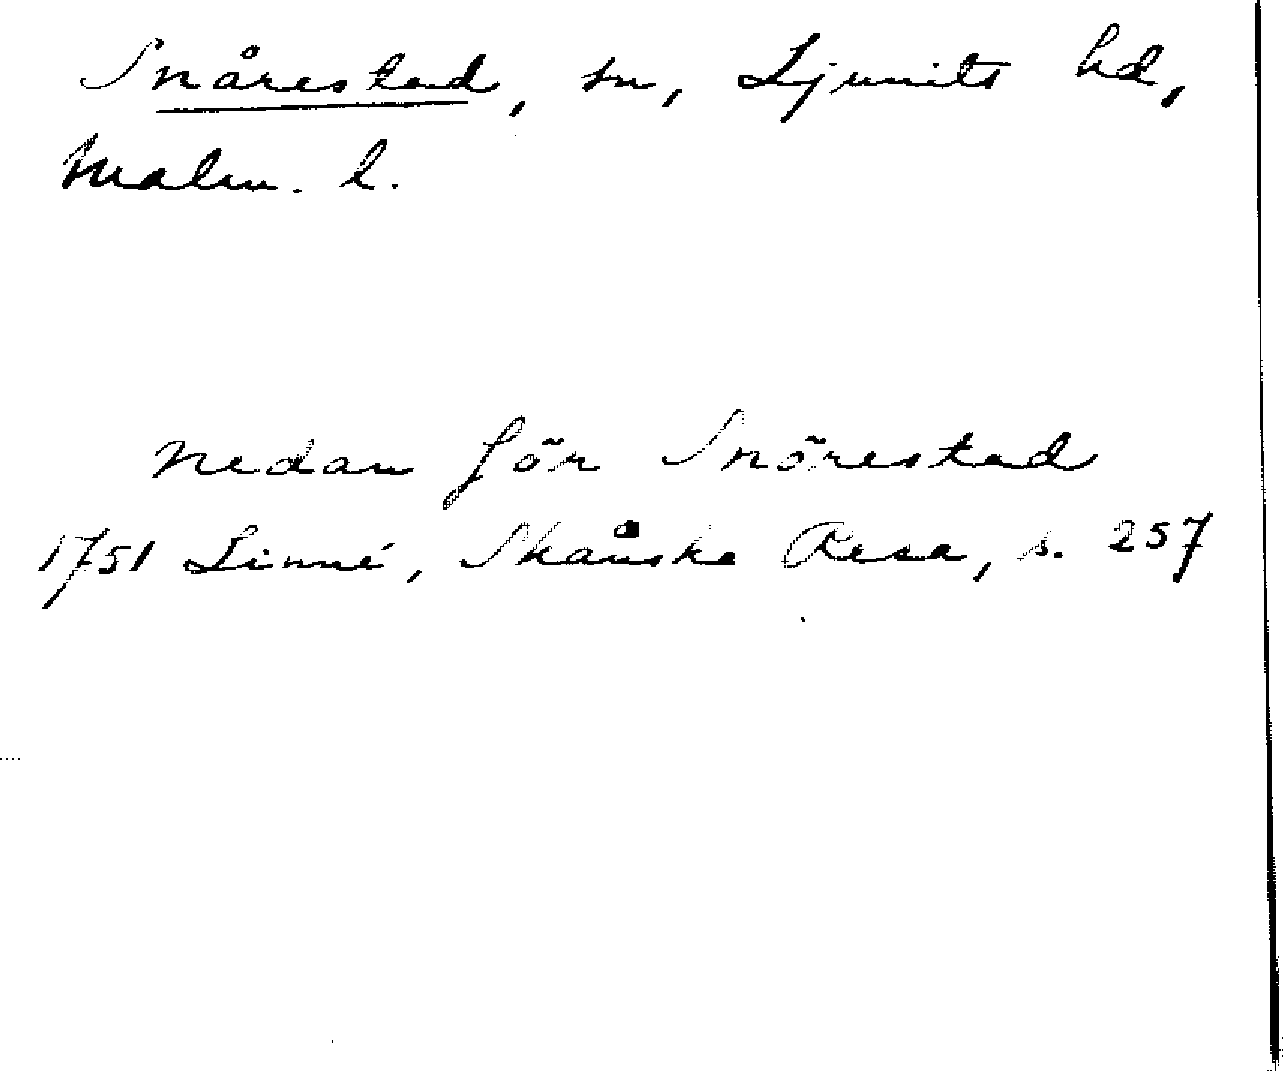 Snårestad, sn, Ljunits hd,
Malm. l.
nedan för Snörestad
1751 Linné, Skånska Resa, s. 257